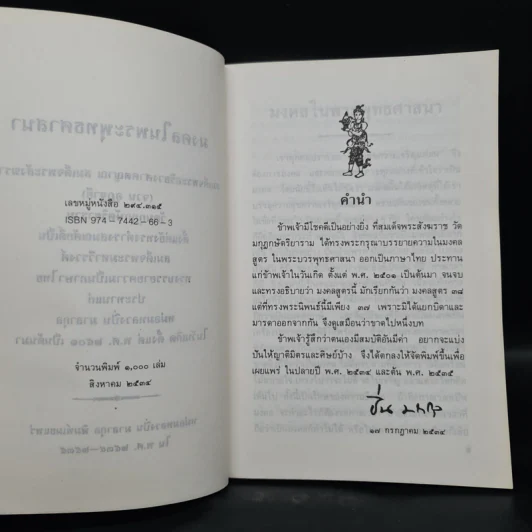 เลขหมู่หนังสือ ๒๙๔.๓๑๕
ISBN 974 - 7442 - 66 - 3
จำนวนพิมพ์ ๑,๐๐๐ เล่ม
สิงหาคม ๒๕๓๔
คำนำ
ข้าพเจ้ามีโชคดีเป็นอย่างยิ่ง ที่สมเด็จพระสังฆราช วัด
มกุฏกษัตริยาราม ได้ทรงพระกรุณาบรรยายความในมงคล
สูตร ในพระบวรพุทธศาสนา ออกเป็นภาษาไทย ประทาน
แก่ข้าพเจ้าในวันเกิด ตั้งแต่ พ.ศ. ๒๕๐๑ เป็นต้นมา จนจบ
และทรงอธิบายว่า มงคลสูตรนี้ มักเรียกกันว่า มงคลสูตร ๓๘
แต่ที่ทรงพระนิพนธ์นี้มีเพียง ๓๗ เพราะมิได้แยกบิดาและ
มารดาออกจากกัน จึงดูเสมือนว่าขาดไปหนึ่งบท
ข้าพเจ้ารู้สึกว่าตนเองมีสมบัติอันมีค่า อยากจะแบ่ง
ปันให้ญาติมิตรและศิษย์บ้าง จึงได้ตกลงให้จัดพิมพ์ขึ้นเพื่อ
เผยแพร่ ในปลายปี พ.ศ. ๒๕๓๔ และต้น พ.ศ. ๒๕๓๕
๑๗ กรกฎาคม ๒๕๓๔